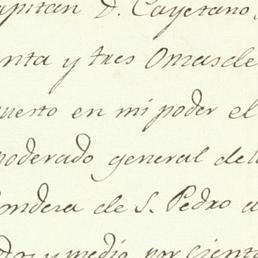 apitan D. Cayetano
enta y tres Omas de
uesto en mi poder el
poderado general de l
ondera de S. Pedro a
dos y medio por cient